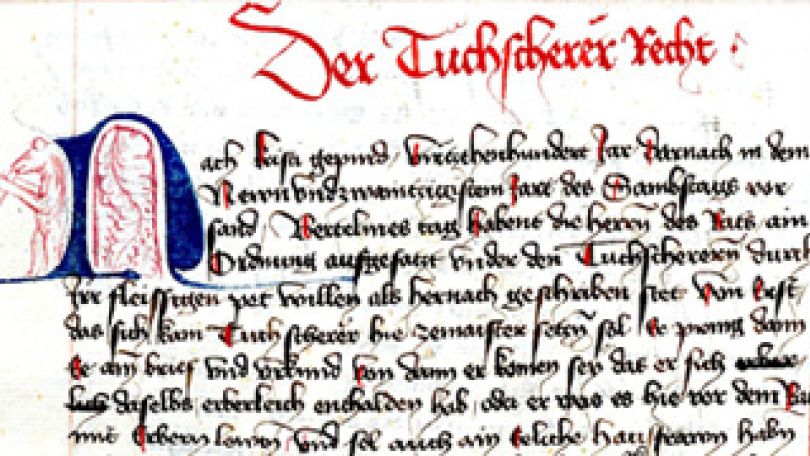 Der Tuchscherer Recht
Nach kristi gepurd virczehenhundert Jar Darnach in dem
Newnundzwainczigistem Jare des Sambstags vor
sand Bertelmes tag habent die herrn des Rats ain
Ordnung aufgesaczt under den Tuchscherern durch
irr fleissigen pet willen als hernach geschriben stet Von erst
das sich kain Tuchscherer hie ze maister seczen sol Er pring dann
ee ain brief und urkund von dann er komen sey das er sich
daselbs erberleich enthalden hab oder er was es hie vor dem Ra
mit Erbern lewtn und sol auch ain eeliche hausfrawn habn